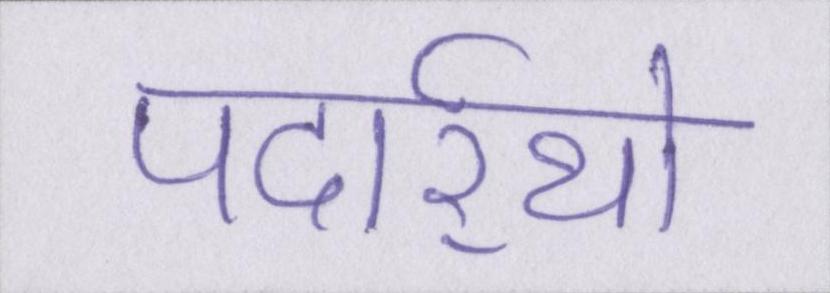 पदार्थो